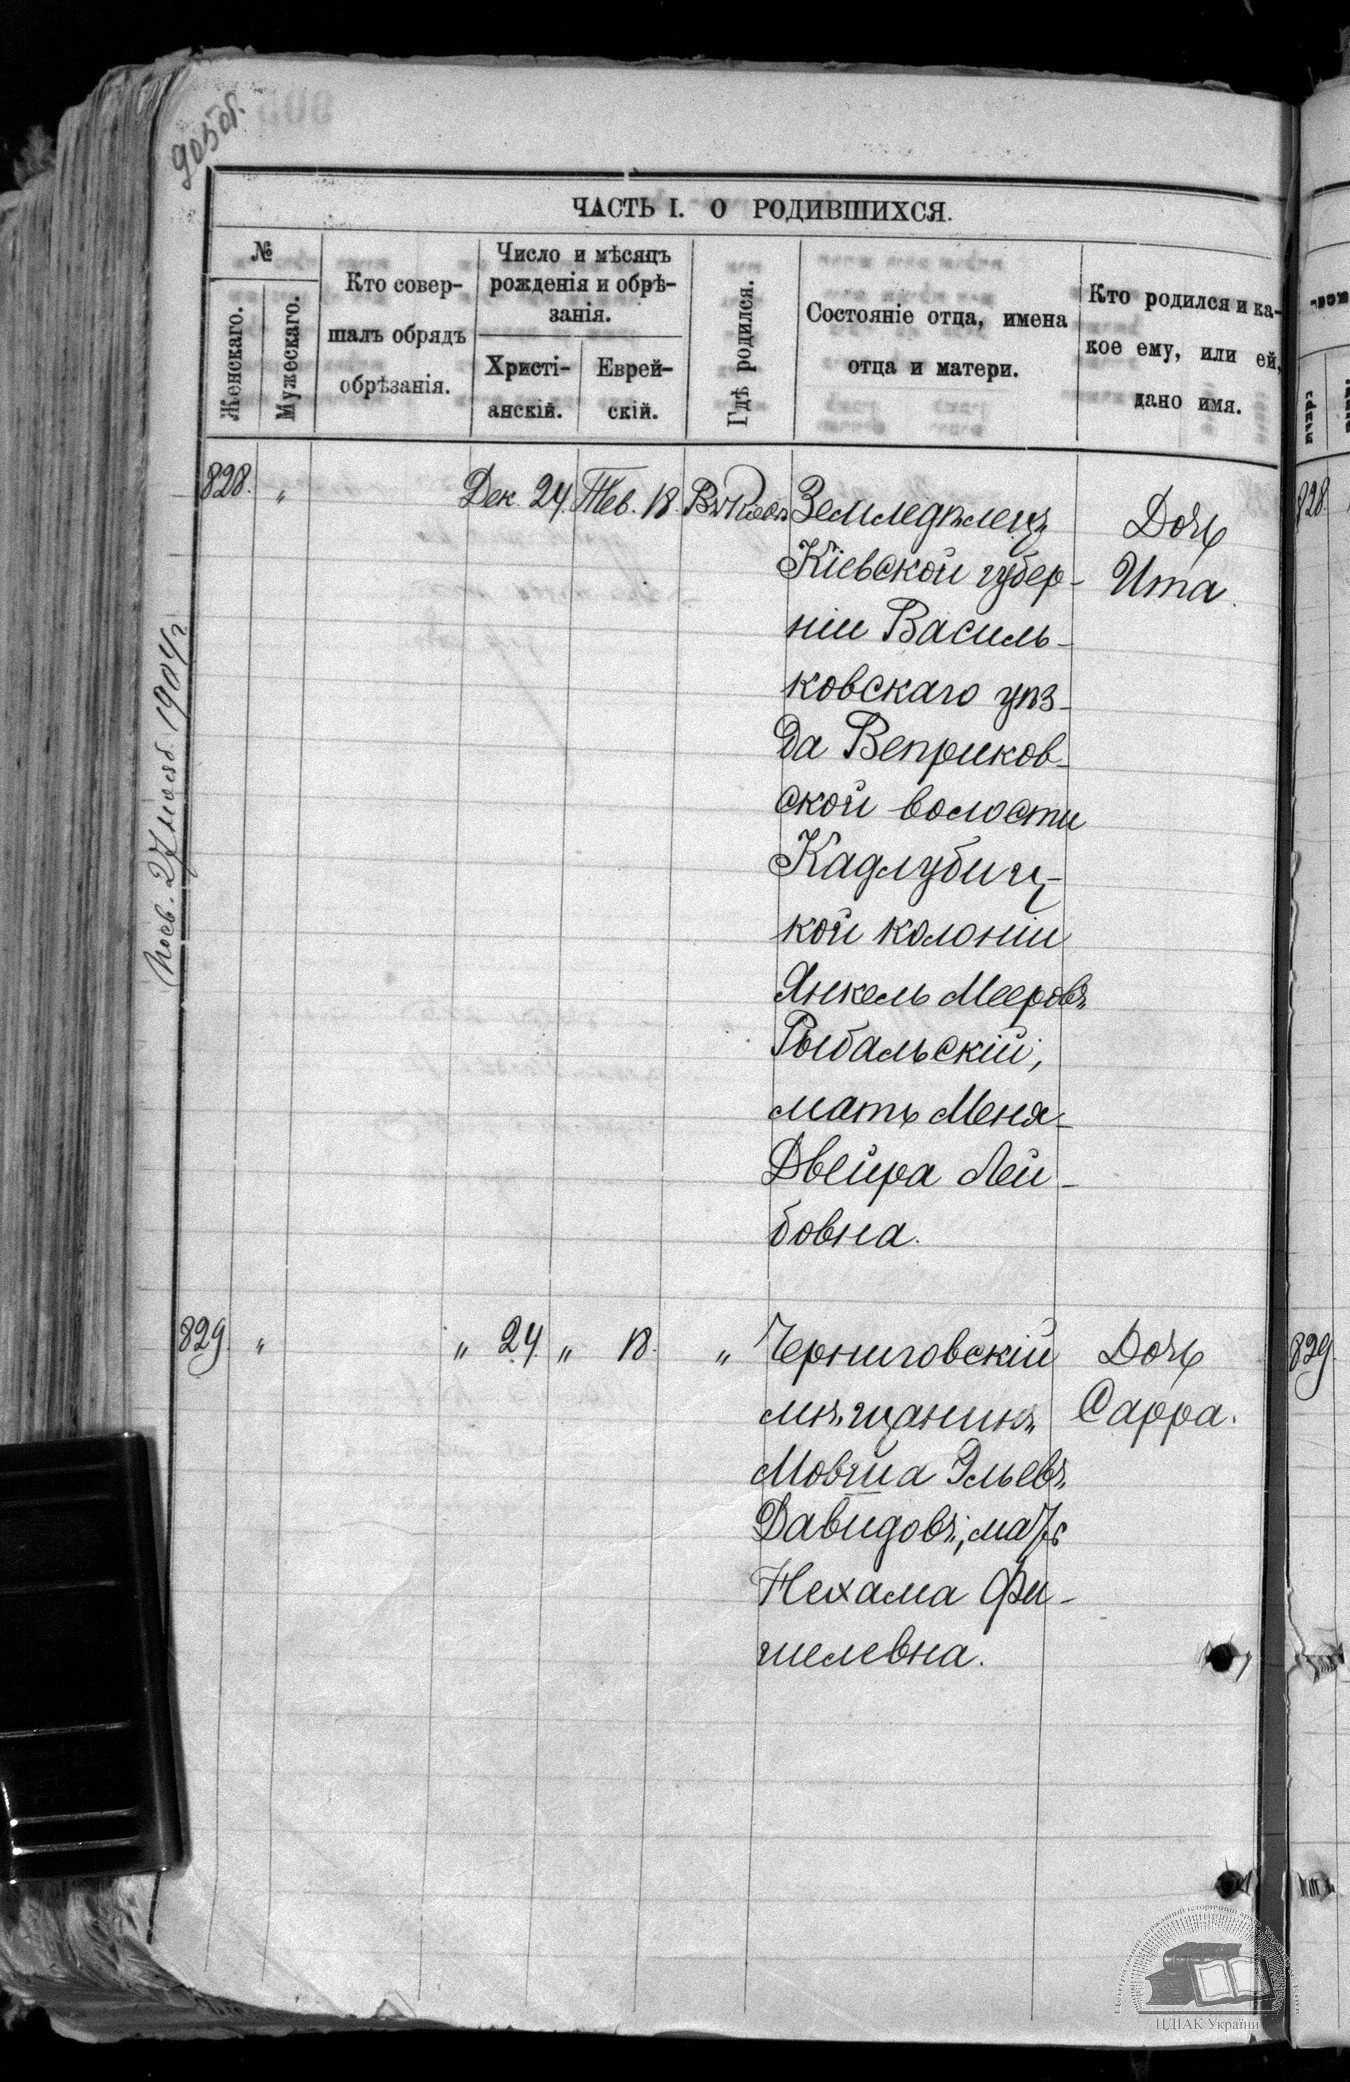 905 об.
ЧАСТЬ I. О РОДИВШИХСЯ.
№
Женскаго.
Мужескаго.
Кто совер-
шалъ обрядъ
обрѣзанія.
Число и мѣсяцъ
рожденія и обрѣ-
занія.
Христі-
анскій.
Еврей-
скій.
Гдѣ родился.
Состояніе отца, имена
отца и матери.
Кто родился и ка-
кое ему, или ей,
дано имя.
828. „ Дек. 24. Тев. 18. Земледѣлецъ Дочь
Кіевской губер- Ита.
ніи Василь-
ковскаго уѣз-
да Веприков-
ской волости
Кадлубиц-
кой колоніи
Янкель Мееровъ
Рыбальскій,
мать Меня-
Двейра Лей-
бовна.
829. „ „ 24. „ 18. „ Черниговскій Дочь
мѣщанинъ Сарра.
Мовша Эльевъ
Давидовъ, мать
Нехама Фи-
шелевна.
27 нояб. 1904 г.
828
829
ЦДІАК України